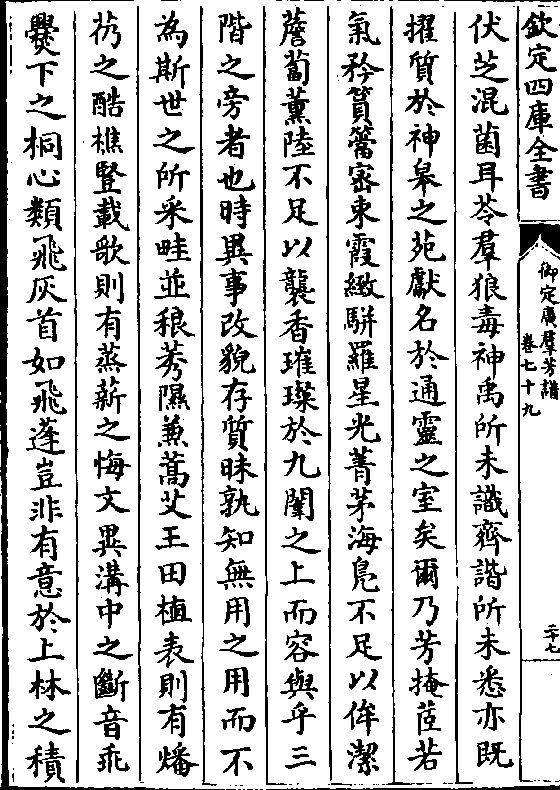 欽定四庫全書
御定廣羣芳譜
卷七十九
二十七
伏芝混菌耳苓羣狼毒神禹所未識齊諧所未悉亦既
擢質於神臯之苑獻名於通靈之室矣爾乃芳掩茝若
氣矜篔簹密束霞緻駢羅星光菁茅海鳬不足以侔潔
薝蔔薰陸不足以襲香璀璨於九閽之上而容與乎三
階之旁者也時異事改貌存質昧孰知無用之用而不
為斯世之所采畦並稂莠隰蕪蒿艾王田植表則有燔
艿之酷樵豎載歌則有蒸薪之悔文異溝中之斷音乖
爨下之桐心類飛灰首如飛蓬豈非有意於上林之積